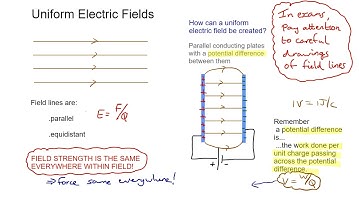 Uniform Electric Fields
Field lines are:
.parallel
.equidistant
E = F/Q
FIELD STRENGTH IS THE SAME
EVERYWHERE WITHIN FIELD!
⇒ force same everywhere!
How can a uniform
electric field be created?
Parallel conducting plates
with a potential difference
between them
In exams,
pay attention
to careful
drawings
of field lines
1V = 1J/C
Remember
a potential difference
is...
...the work done per
unit charge passing
across the potential
difference.
V = W/Q